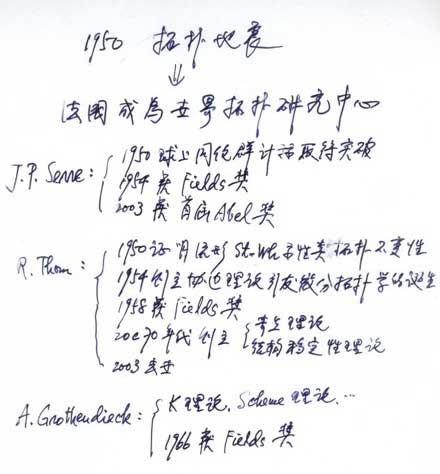 1950 拓扑地震
⇓
法国成为世界拓扑研究中心
J.P. Serre: 1950 球上同伦群计算取得突破
1954 获 Fields 奖
2003 获 首届 Abel 奖
R. Thom: 1950 证明流形 St.Wh.示性类拓扑不变性
1954 创立协边理论引发微分拓扑学的诞生
1958 获 Fields 奖
20c70年代创立 奇点理论
结构稳定性理论
2003 去世
A. Grothendieck: K理论, Scheme 理论, …
1966 获 Fields 奖